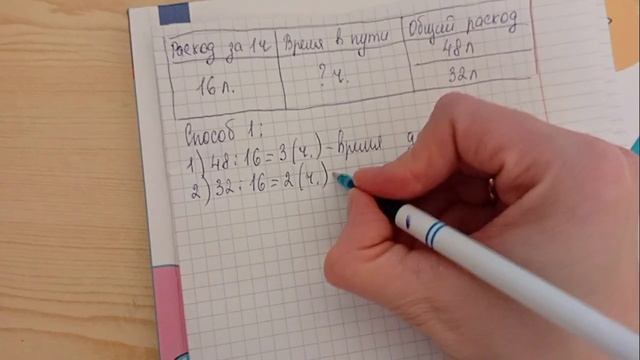 Расход за 1ч Время в пути Общий расход
16л. ? ч. 48л
32л
Способ 1:
1) 48:16=3(ч.)-время
2) 32:16=2(ч.)-